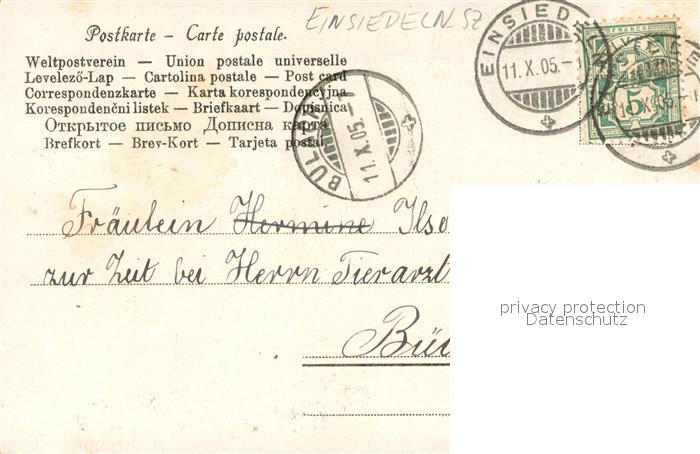 EINSIEDELN SZ
Postkarte – Carte postale.
Weltpostverein — Union postale universelle
Levelező-Lap — Cartolina postale — Post card
Correspondenzkarte — Karta korespondencyjna
Korespondenční listek — Briefkaart — Dopisnica
Открытое письмо Дописна карта
Brefkort — Brev-Kort — Tarjeta postal
EINSIED
11.X.05.-1
FRANCO
5
11.X.05.-1
Fräulein Hermine Ilse
zur Zeit bei Herrn Tierarzt
Bü
privacy protection
Datenschutz